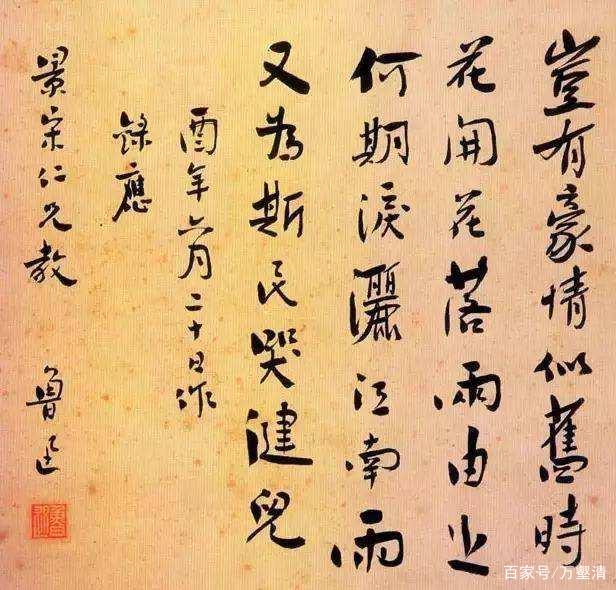 豈有豪情似舊時
花開花落兩由之
何期淚灑江南雨
又為斯民哭健兒
酉年六月二十日作
錄應
景宋仁兄教
魯迅
魯迅
百家号/万壑清